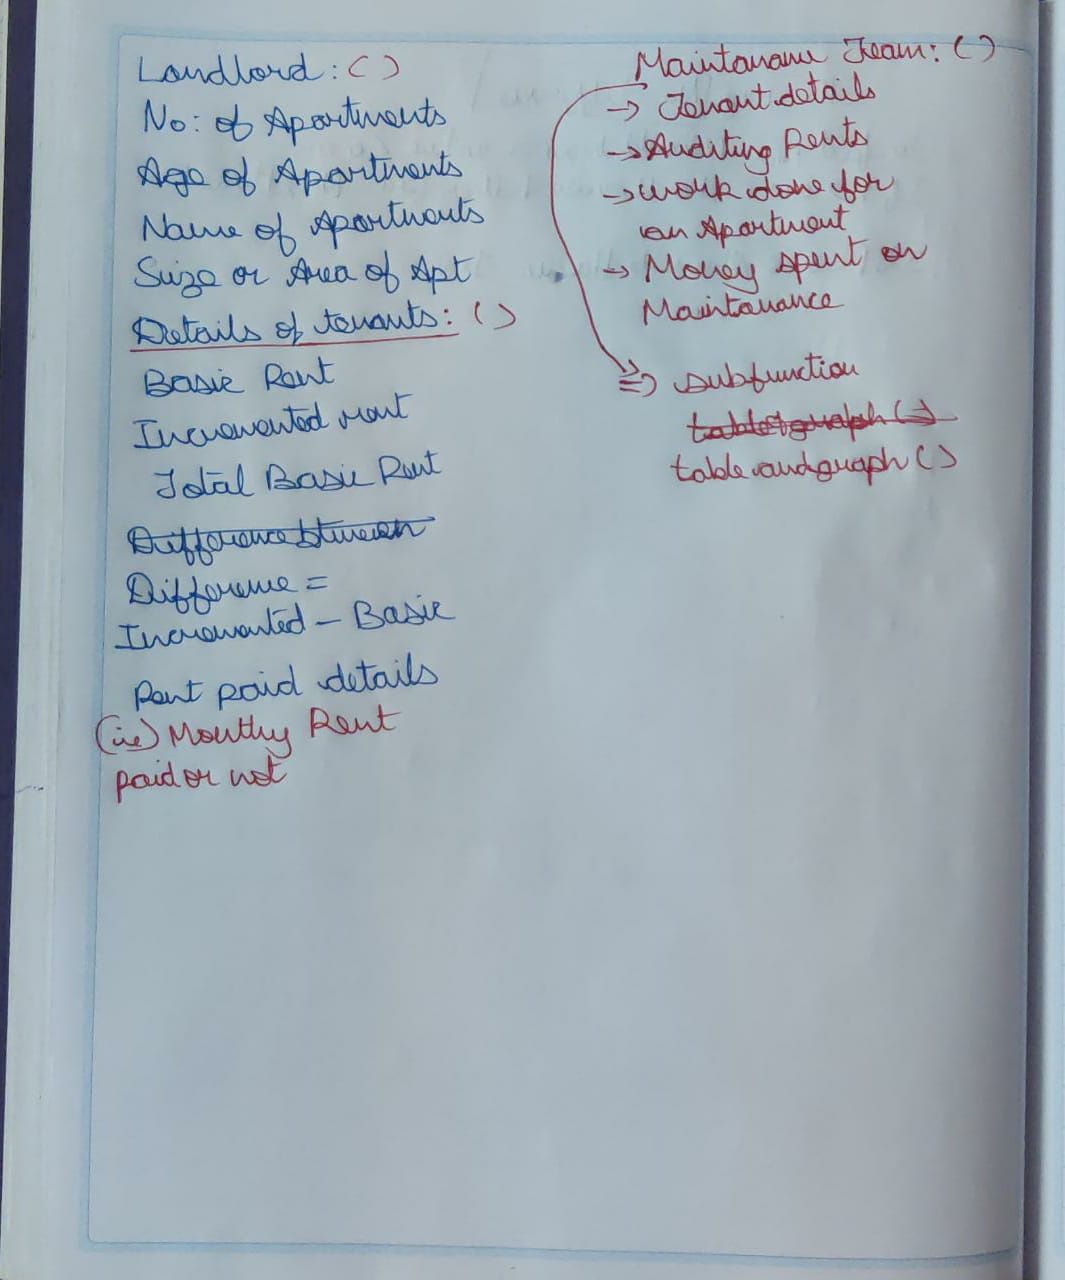 Landlord: ( )
No: of Apartments
Age of Apartments
Name of Apartments
Size or Area of Apt
Details of tenants: ( )
Basic Rent
Incremented rent
Total Basic Rent
Difference btween
Difference =
Incremented - Basic
Rent paid details
(ie) Monthy Rent
paid or not
Maintanane Team: ( )
→ Tenant details
→ Auditing Rents
→ work done for
an Apartment
→ Money spent on
Maintanance
⇒ subfunction
table&graph( )
table and graph ( )